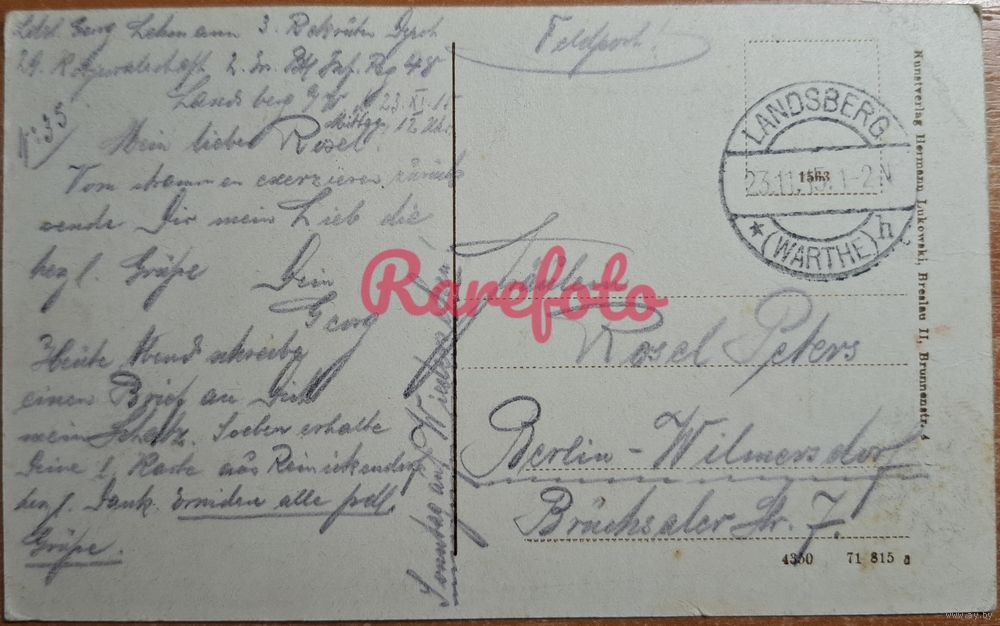 Georg Lehmann 3. Rekruten Depot
2. Inf. Rg 48
Landsberg a/W. 23.XI.15
Mittgs. 12 Uhr
N: 35
Mein liebes Rosel.
Vom strammen exerzieren zurück
sende Dir mein Lieb die
herzl. Grüße Dein
Georg
Heute Abend schreibe
einen Brief an Dich
mein Schatz. Soeben erhalte
Deine l. Karte aus Reinickendorf
herzl. Dank. alle
Grüße.
Sonntag auf Wiedersehen
Feldpost!
LANDSBERG
23.11.15. 1-2N
* (WARTHE) h
1563
Fräulein
Rosel Peters
Berlin-Wilmersdorf
Bruchsaler Str. 7.
Kunstverlag Hermann Lukowski, Breslau II, Brunnenstr. 4
4350 71 815 a
Rarefoto
www.ay.by